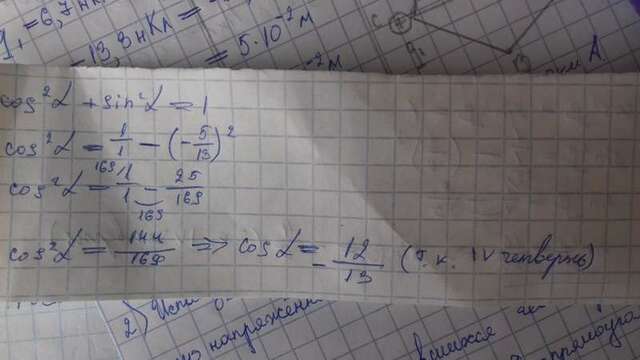 q₁ = 6,7 нКл =
= 13,3 нКл = 5·10⁻² м
⁻² м
C
A.
cos²α + sin²α = 1
cos²α = 1/1 − (−5/13)²
cos²α = ¹⁶⁹⁾1/1 − 25/169
169
cos²α = 144/169 ⇒ cos α = − 12/13 (т.к. IV четверть)
2)
напряжённо